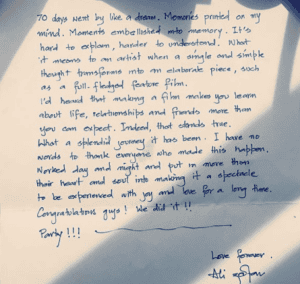 70 days went by like a dream. Memories printed on my
mind. Moments embellished into memory. It's
hard to explain, harder to understand. What
it means to an artist when a single and simple
thought transforms into an elaborate piece, such
as a full-fledged feature film.
I'd heard that making a film makes you learn
about life, relationships and friends more than
you can expect. Indeed, that stands true.
What a splendid journey it has been. I have no
words to thank everyone who made this happen.
Worked day and night and put in more than
their heart and soul into making it a spectacle
to be experienced with joy and love for a long time.
Congratulations guys! We did it!!
Party!!!
Love forever,
Ali